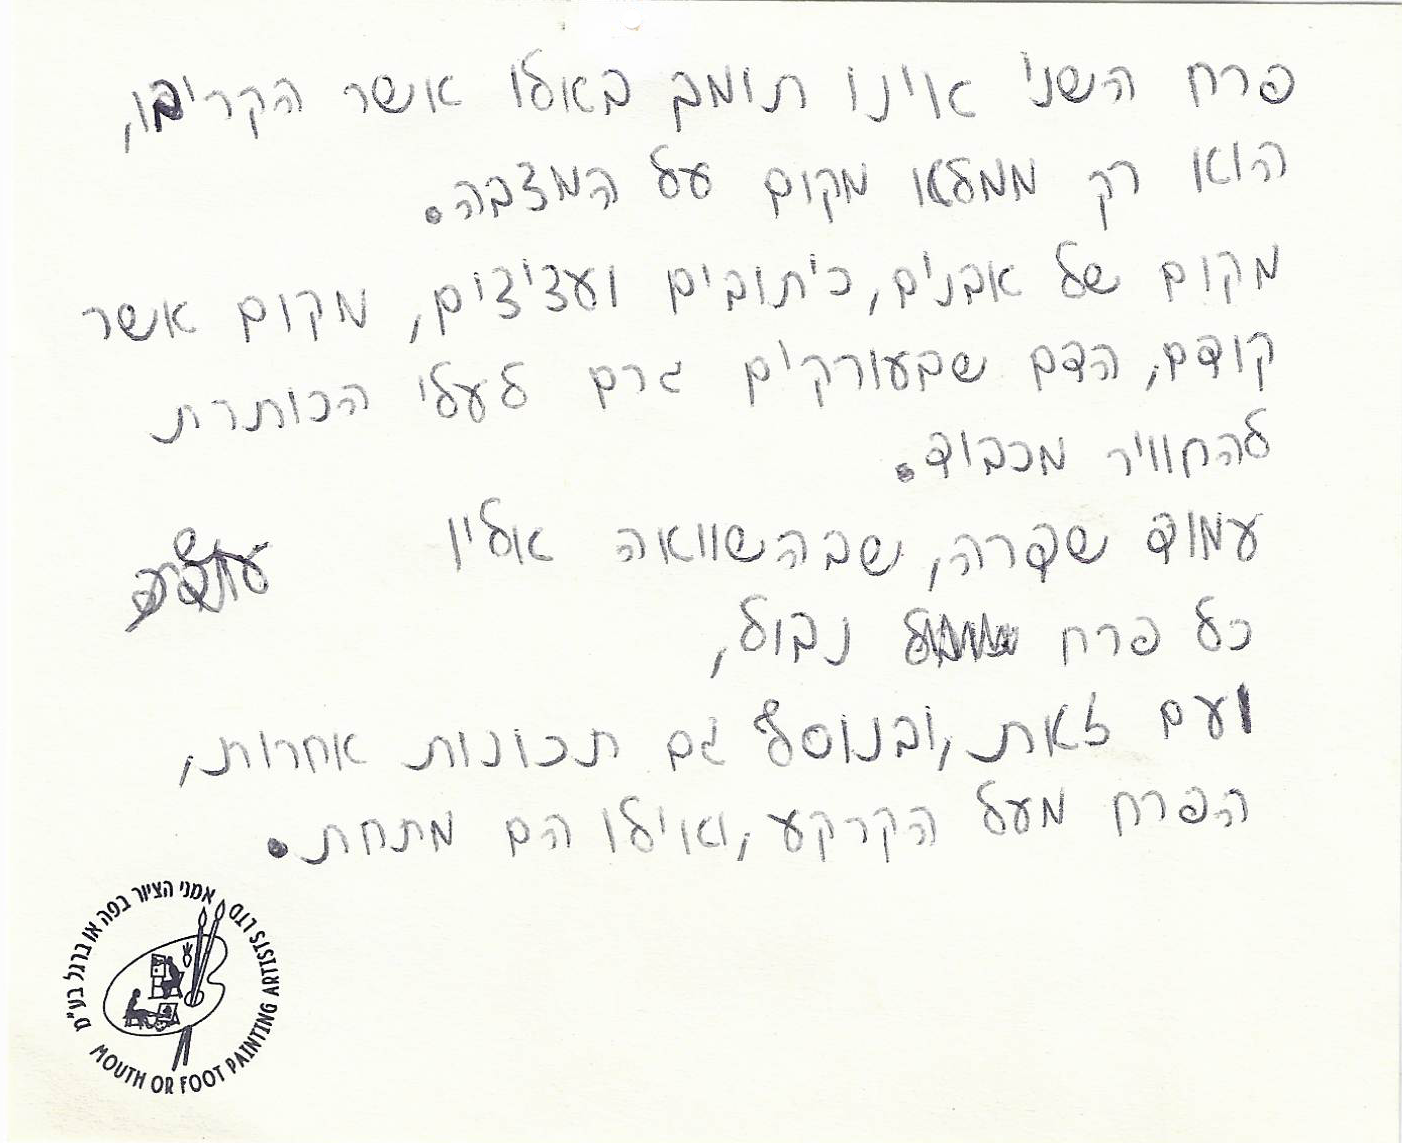 פרח השני אינו תומך באלו אשר הקריבו,
הוא רק ממלא מקום על המצבה.
מקום של אבנים, כיתובים ועציצים, מקום אשר
קודם, הדם שבעורקים גרם לעלי הכותרת
להחוויר מכבוד.
עמוד שדרה, שבהשוואה אליו
כל פרח נבול,
ועם זאת, ובנוסף גם תכונות אחרות,
הפרח מעל הקרקע, ואילו הם מתחת.
אמני הציור בפה או ברגל בע"מ
MOUTH OR FOOT PAINTING ARTISTS LTD